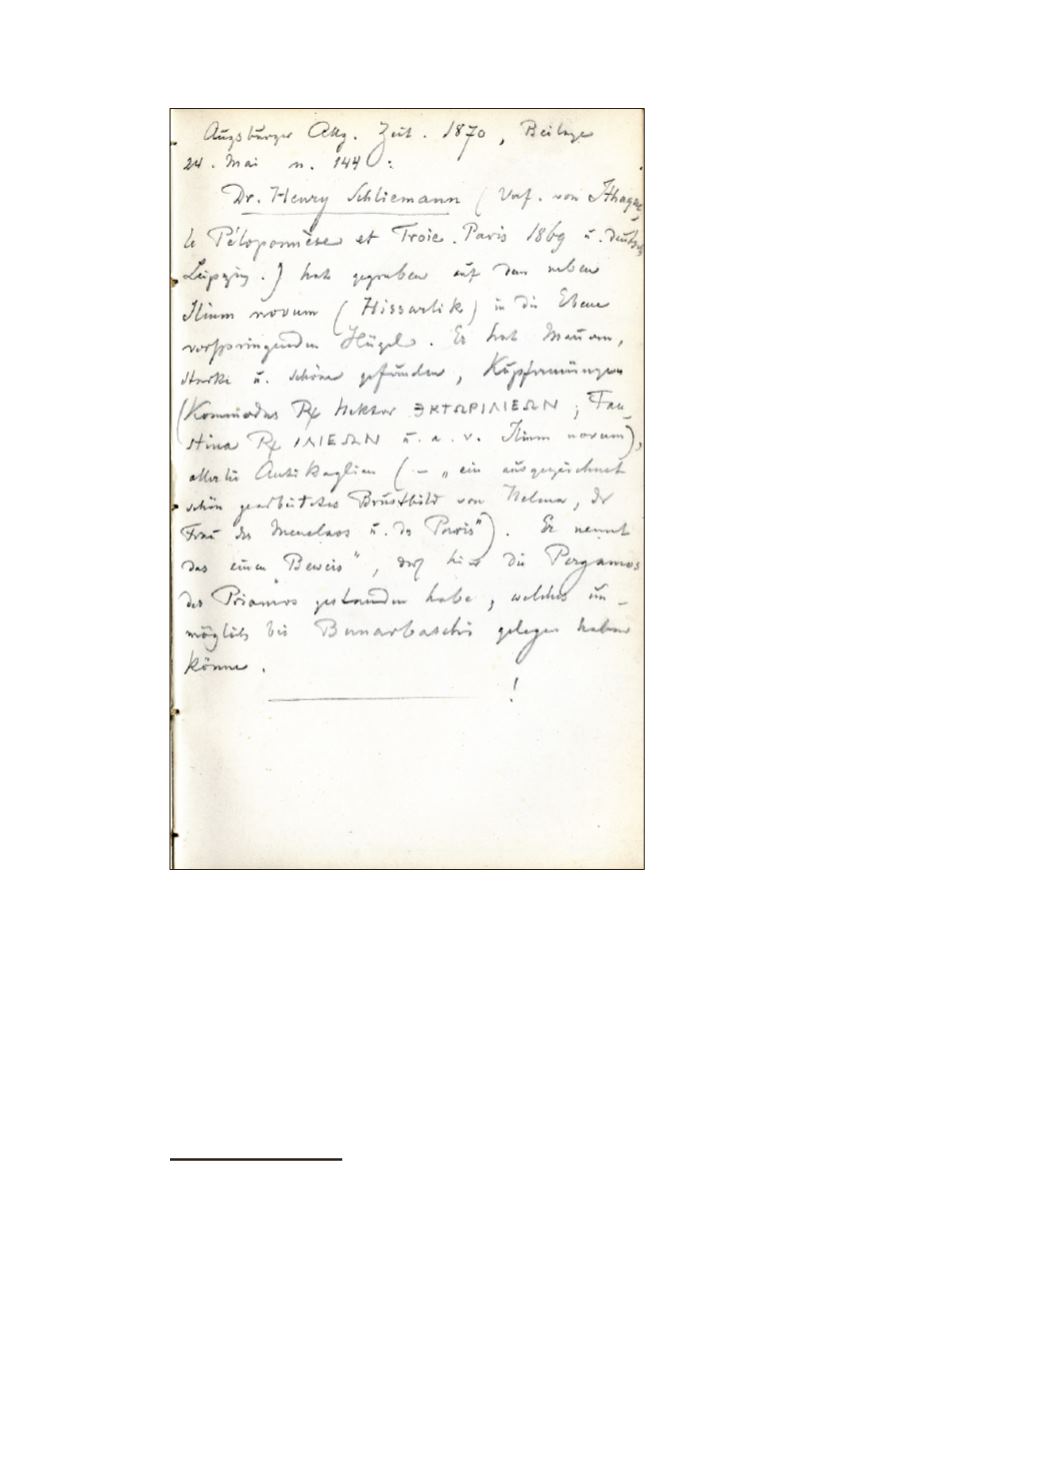 Augsburger Allg. Zeit. 1870, Beilage
24. Mai n. 144:
Dr. Henry Schliemann (Verf. von Ithaque,
le Péloponnèse et Troie. Paris 1869 u. deutsch
Leipzig.) hat gegraben auf dem neben
Ilium novum (Hissarlik) in die Ebene
vorspringenden Hügel. Er hat Mauern,
starke u. schöne gefunden, Kupfermünzen
(Kommodus Rf Hektor ЭΚΤΩΡΙΛΙΕΩΝ; Fau-
stina Rf ΙΛΙΕΩΝ u. a. v. Ilium novum),
allerlei Antikaglien (– „ein ausgezeichnet
schön gearbeitetes Brustbild von Helena, der
Frau des Menelaos u. des Paris"). Er nennt
das einen Beweis", daß hier die Pergamos
des Priamos gestanden habe, welches un-
möglich bei Bunarbaschi gelegen haben
könne.
!